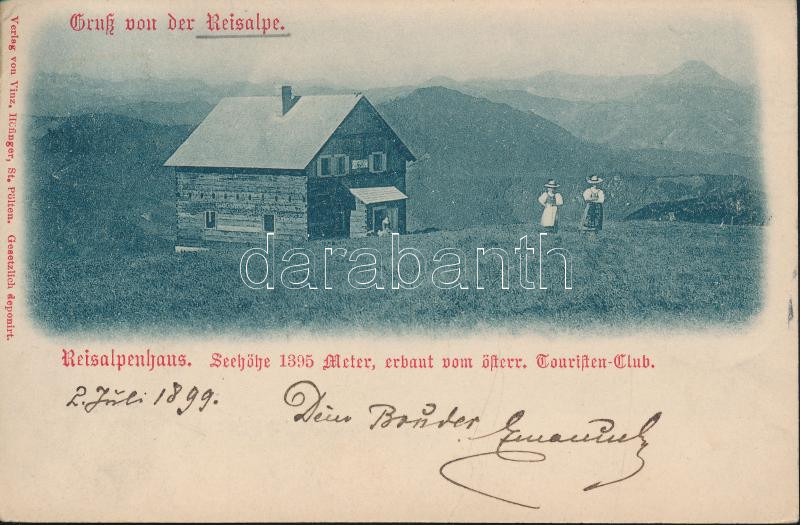 Gruß von der Reisalpe.
Verlag von Vinz. Höfinger, St. Pölten. Gesetzlich deponirt.
darabanth
Reisalpenhaus. Seehöhe 1395 Meter, erbaut vom österr. Touristen-Club.
2. Juli 1899.
Dein Bruder Emanuel